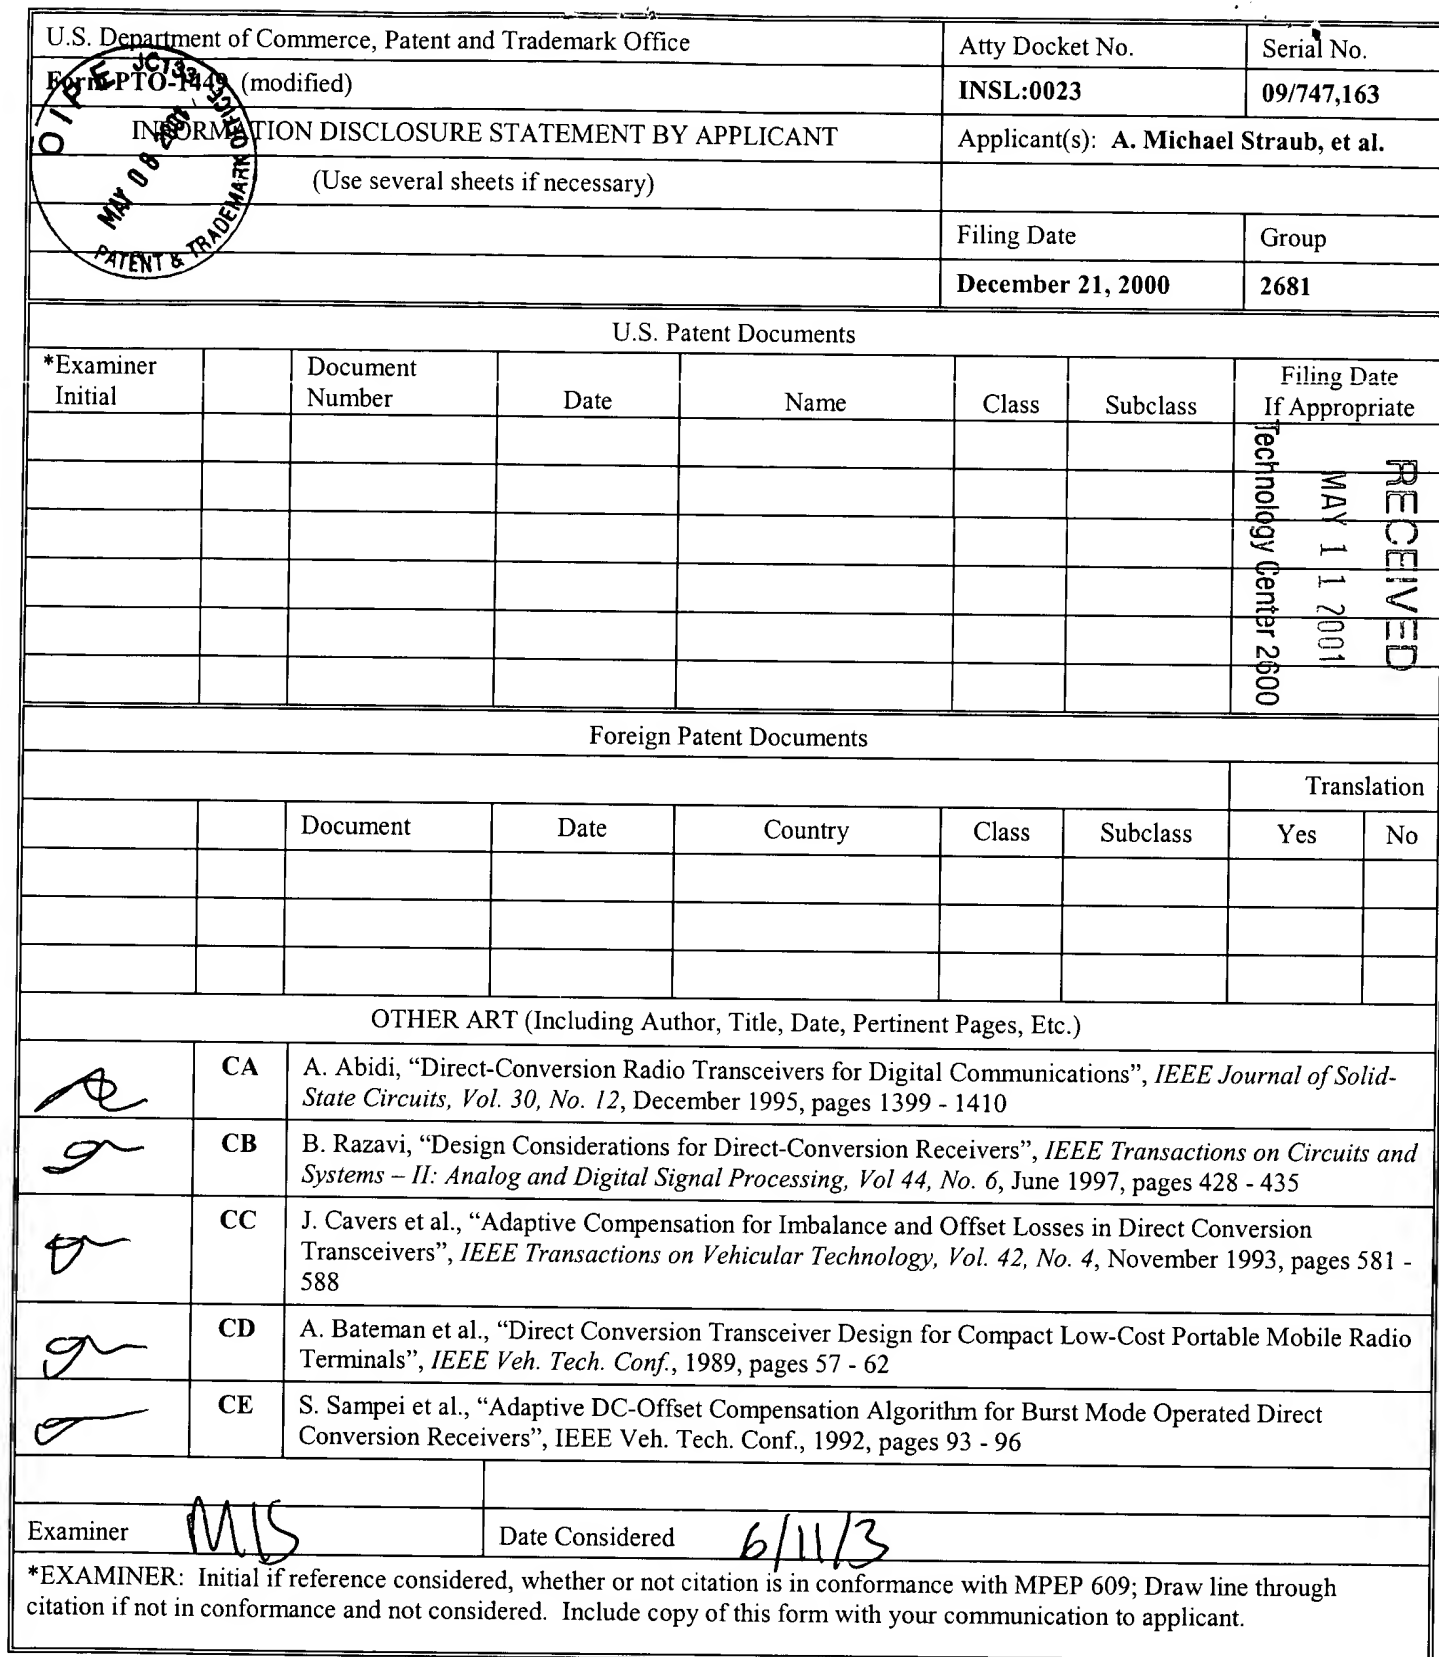 U.S. Department of Commerce, Patent and Trademark Office
Atty Docket No.
Serial No.
Form PTO-1449 (modified)
INSL:0023
09/747,163
INFORMATION DISCLOSURE STATEMENT BY APPLICANT
Applicant(s): A. Michael Straub, et al.
(Use several sheets if necessary)
OIPE JC133
MAY 08 2001
PATENT & TRADEMARK OFFICE
Filing Date
Group
December 21, 2000
2681
U.S. Patent Documents
*Examiner
Initial
Document
Number
Date
Name
Class
Subclass
Filing Date
If Appropriate
RECEIVED
MAY 11 2001
Technology Center 2600
Foreign Patent Documents
Translation
Document
Date
Country
Class
Subclass
Yes
No
OTHER ART (Including Author, Title, Date, Pertinent Pages, Etc.)
CA
A. Abidi, “Direct-Conversion Radio Transceivers for Digital Communications”, IEEE Journal of Solid-
State Circuits, Vol. 30, No. 12, December 1995, pages 1399 - 1410
CB
B. Razavi, “Design Considerations for Direct-Conversion Receivers”, IEEE Transactions on Circuits and
Systems – II: Analog and Digital Signal Processing, Vol 44, No. 6, June 1997, pages 428 - 435
CC
J. Cavers et al., “Adaptive Compensation for Imbalance and Offset Losses in Direct Conversion
Transceivers”, IEEE Transactions on Vehicular Technology, Vol. 42, No. 4, November 1993, pages 581 -
588
CD
A. Bateman et al., “Direct Conversion Transceiver Design for Compact Low-Cost Portable Mobile Radio
Terminals”, IEEE Veh. Tech. Conf., 1989, pages 57 - 62
CE
S. Sampei et al., “Adaptive DC-Offset Compensation Algorithm for Burst Mode Operated Direct
Conversion Receivers”, IEEE Veh. Tech. Conf., 1992, pages 93 - 96
Examiner
Date Considered 6/11/3
*EXAMINER: Initial if reference considered, whether or not citation is in conformance with MPEP 609; Draw line through
citation if not in conformance and not considered. Include copy of this form with your communication to applicant.